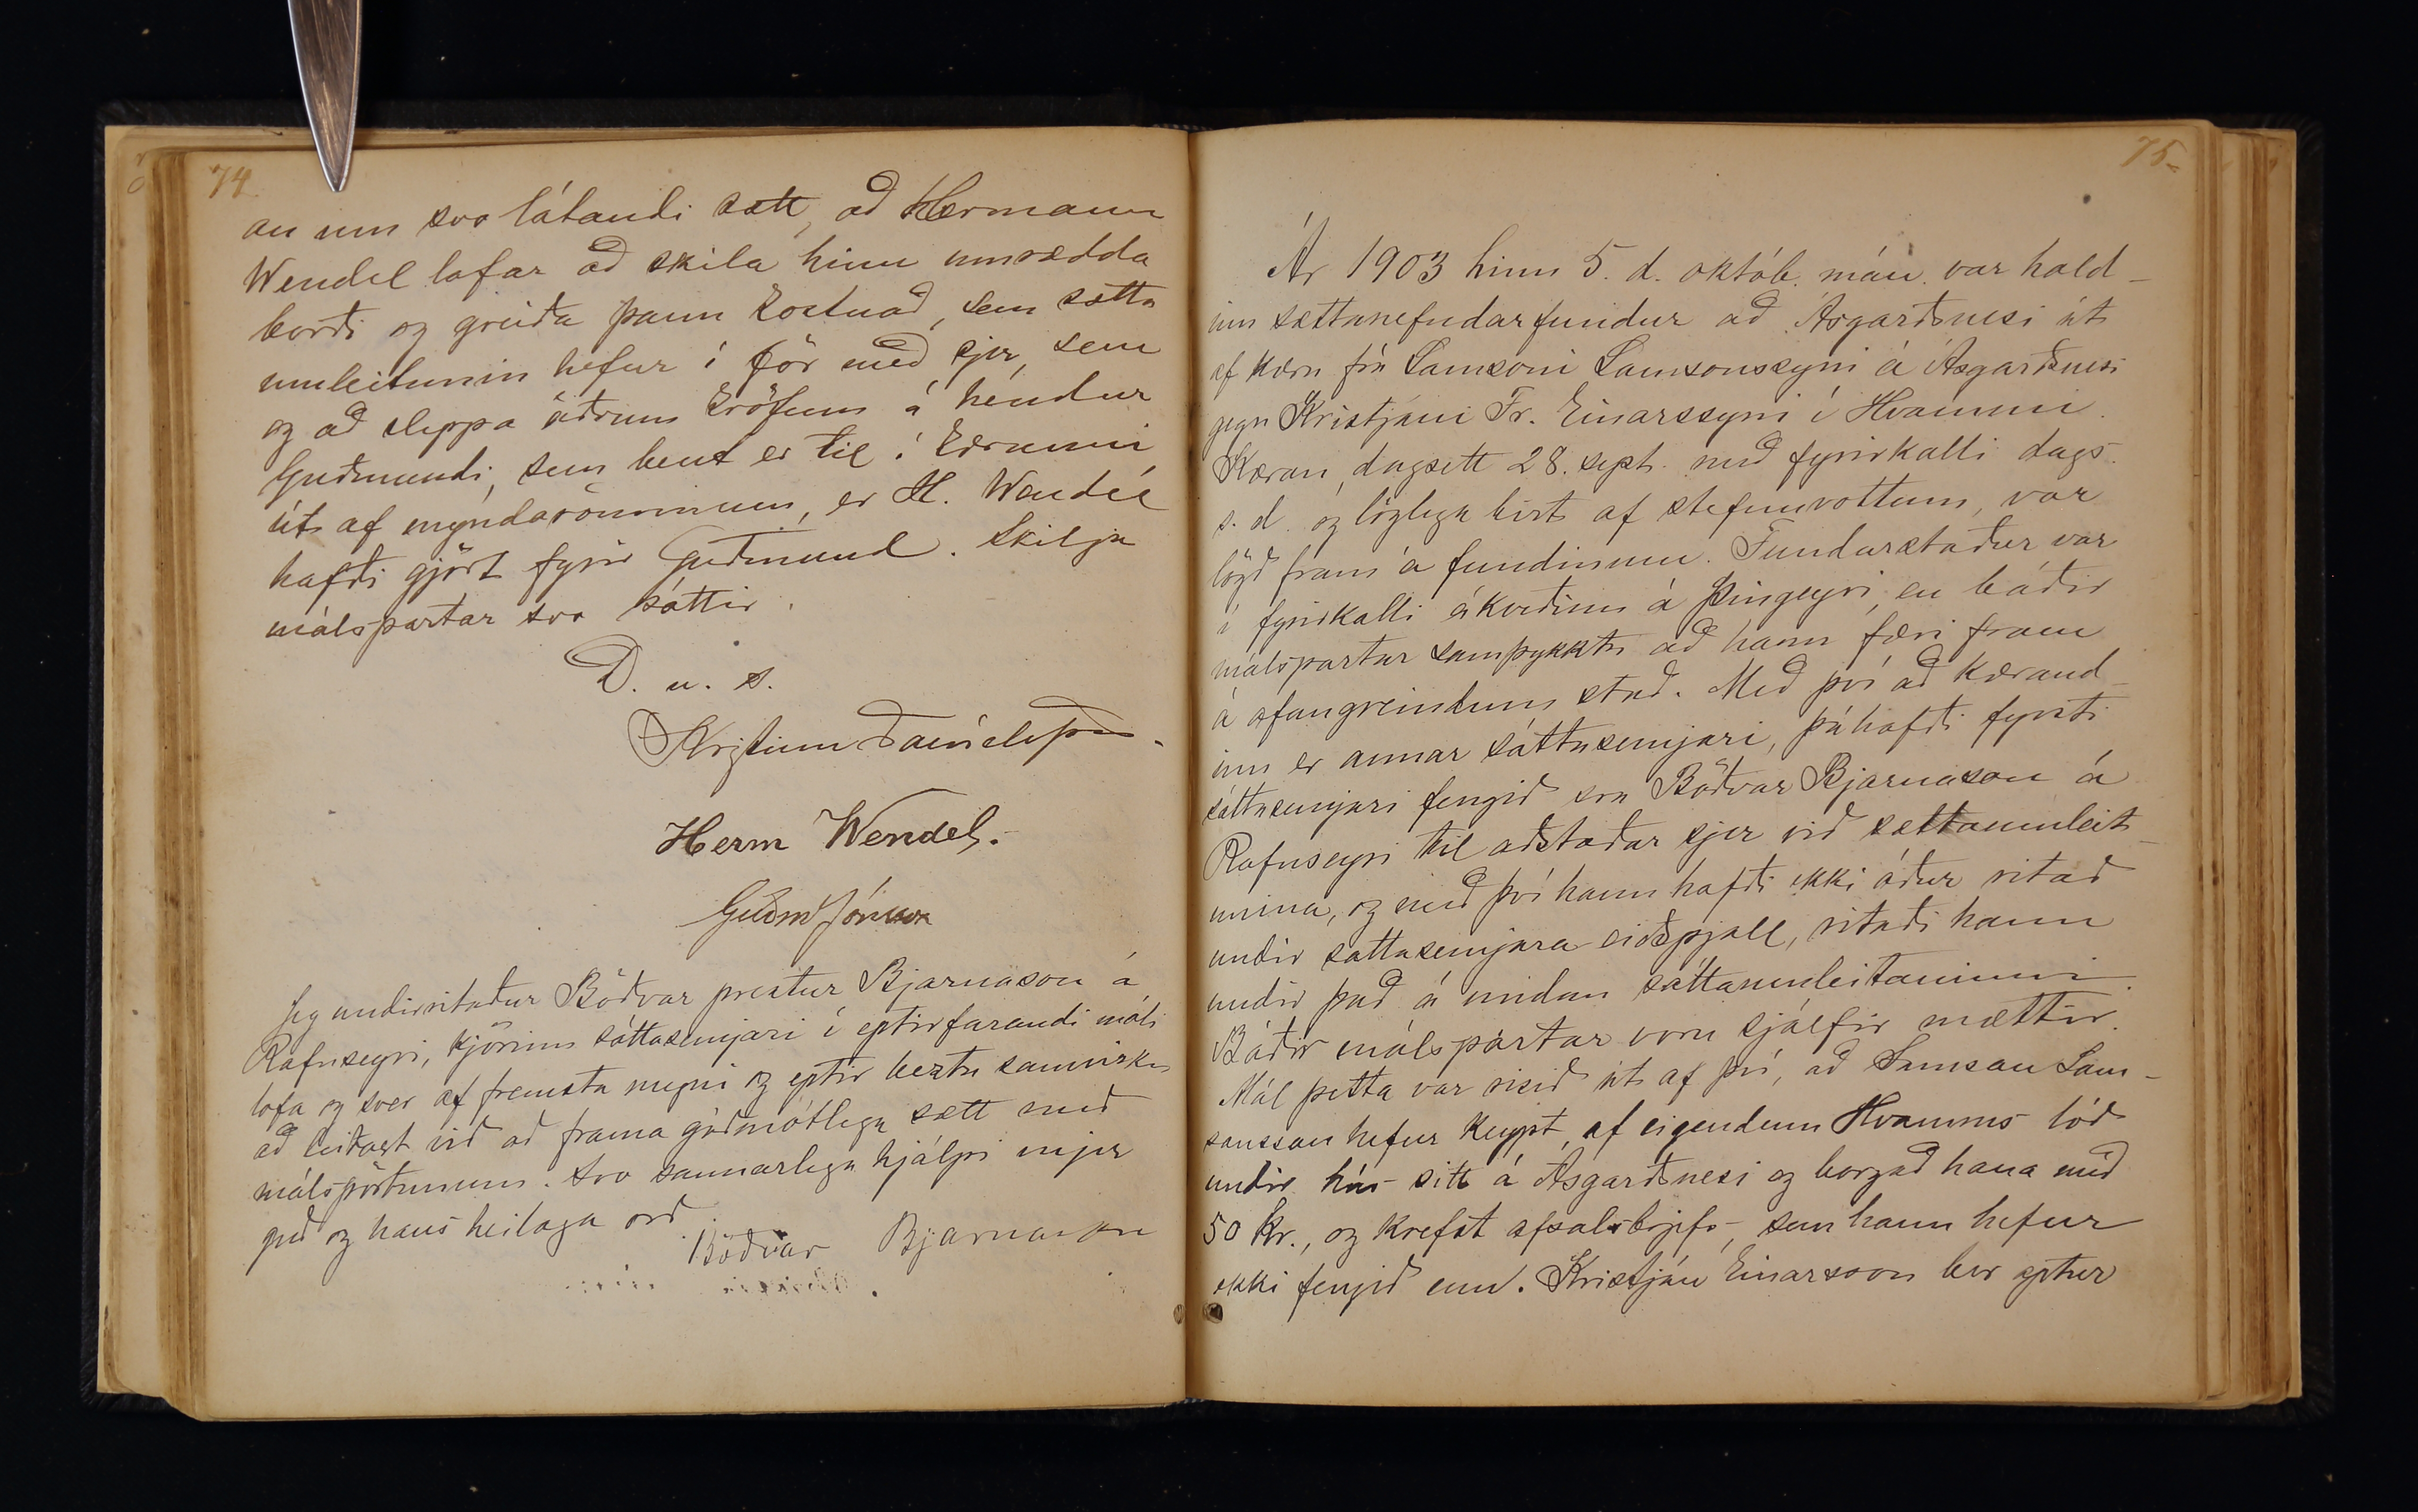 74
an um svo látandi sætt, að Hermann
Wendel lofar að skila hinu umrædda
borði og greiða þann kostnað, sem sátta
umleitunin hefur í för með sjer, sem
og að sleppa öðrum kröfum á hendur
Guðmundi, sem bent er til í kærunni,
út af myndarömmum, er H. Wendel
hafði gjört fyrir Guðmund. Skilja
málspartar svo sáttir.
D. u. s.
Kristinn Daníelsson.
Herm Wendel.
Guðm Jónsson
Jeg undirritaður Böðvar prestur Bjarnason á
Rafnseyri, kjörinn sáttasemjari í eptirfarandi máli
lofa og sver af fremsta megni og eptir beztu samvizku
að leitast við að frama góðmótlega sætt með
málspörtunum. Svo sannarlega hjálpi mjer
guð og hans heilaga orð.
Böðvar Bjarnason
75.
Ár 1903 hinn 5. d. októb. mán. var hald-
inn sættanefndarfundur að Ásgarðsnesi út
af kæru frá Samsoni Samsonssyni á Ásgarðsnesi
gegn Kristjáni Fr. Einarssyni í Hvammi.
Kæran, dagsett 28. sept. með fyrirkalli dags.
s. d. og löglega birt af stefnuvottum, var
lögð fram á fundinum. Fundarstaður var
í fyrirkalli ákveðinn á Þingeyri, en báðir
málspartar samþykktu að hann færi fram
á ofangreindum stað. Með því að kærand-
inn er annar sáttasemjari, þá hafði fyrsti
sáttasemjari fengið sra Böðvar Bjarnason á
Rafnseyri til aðstoðar sjer við sættaumleit-
unina, og með því hann hafði ekki áður ritað
undir sáttasemjara-eiðspjall, ritaði hann
undir það á undan sáttaumleitaninni.
Báðir málspartar voru sjálfir mættir.
Mál þetta var risið út af því, að Samson Sam-
sonsson hefur keypt af eigendum Hvamms lóð
undir hús sitt á Ásgarðsnesi og borgað hana með
50 kr., og krefst afsalsbrjefs, sem hann hefur
ekki fengið enn. Kristján Einarsson ber aptur